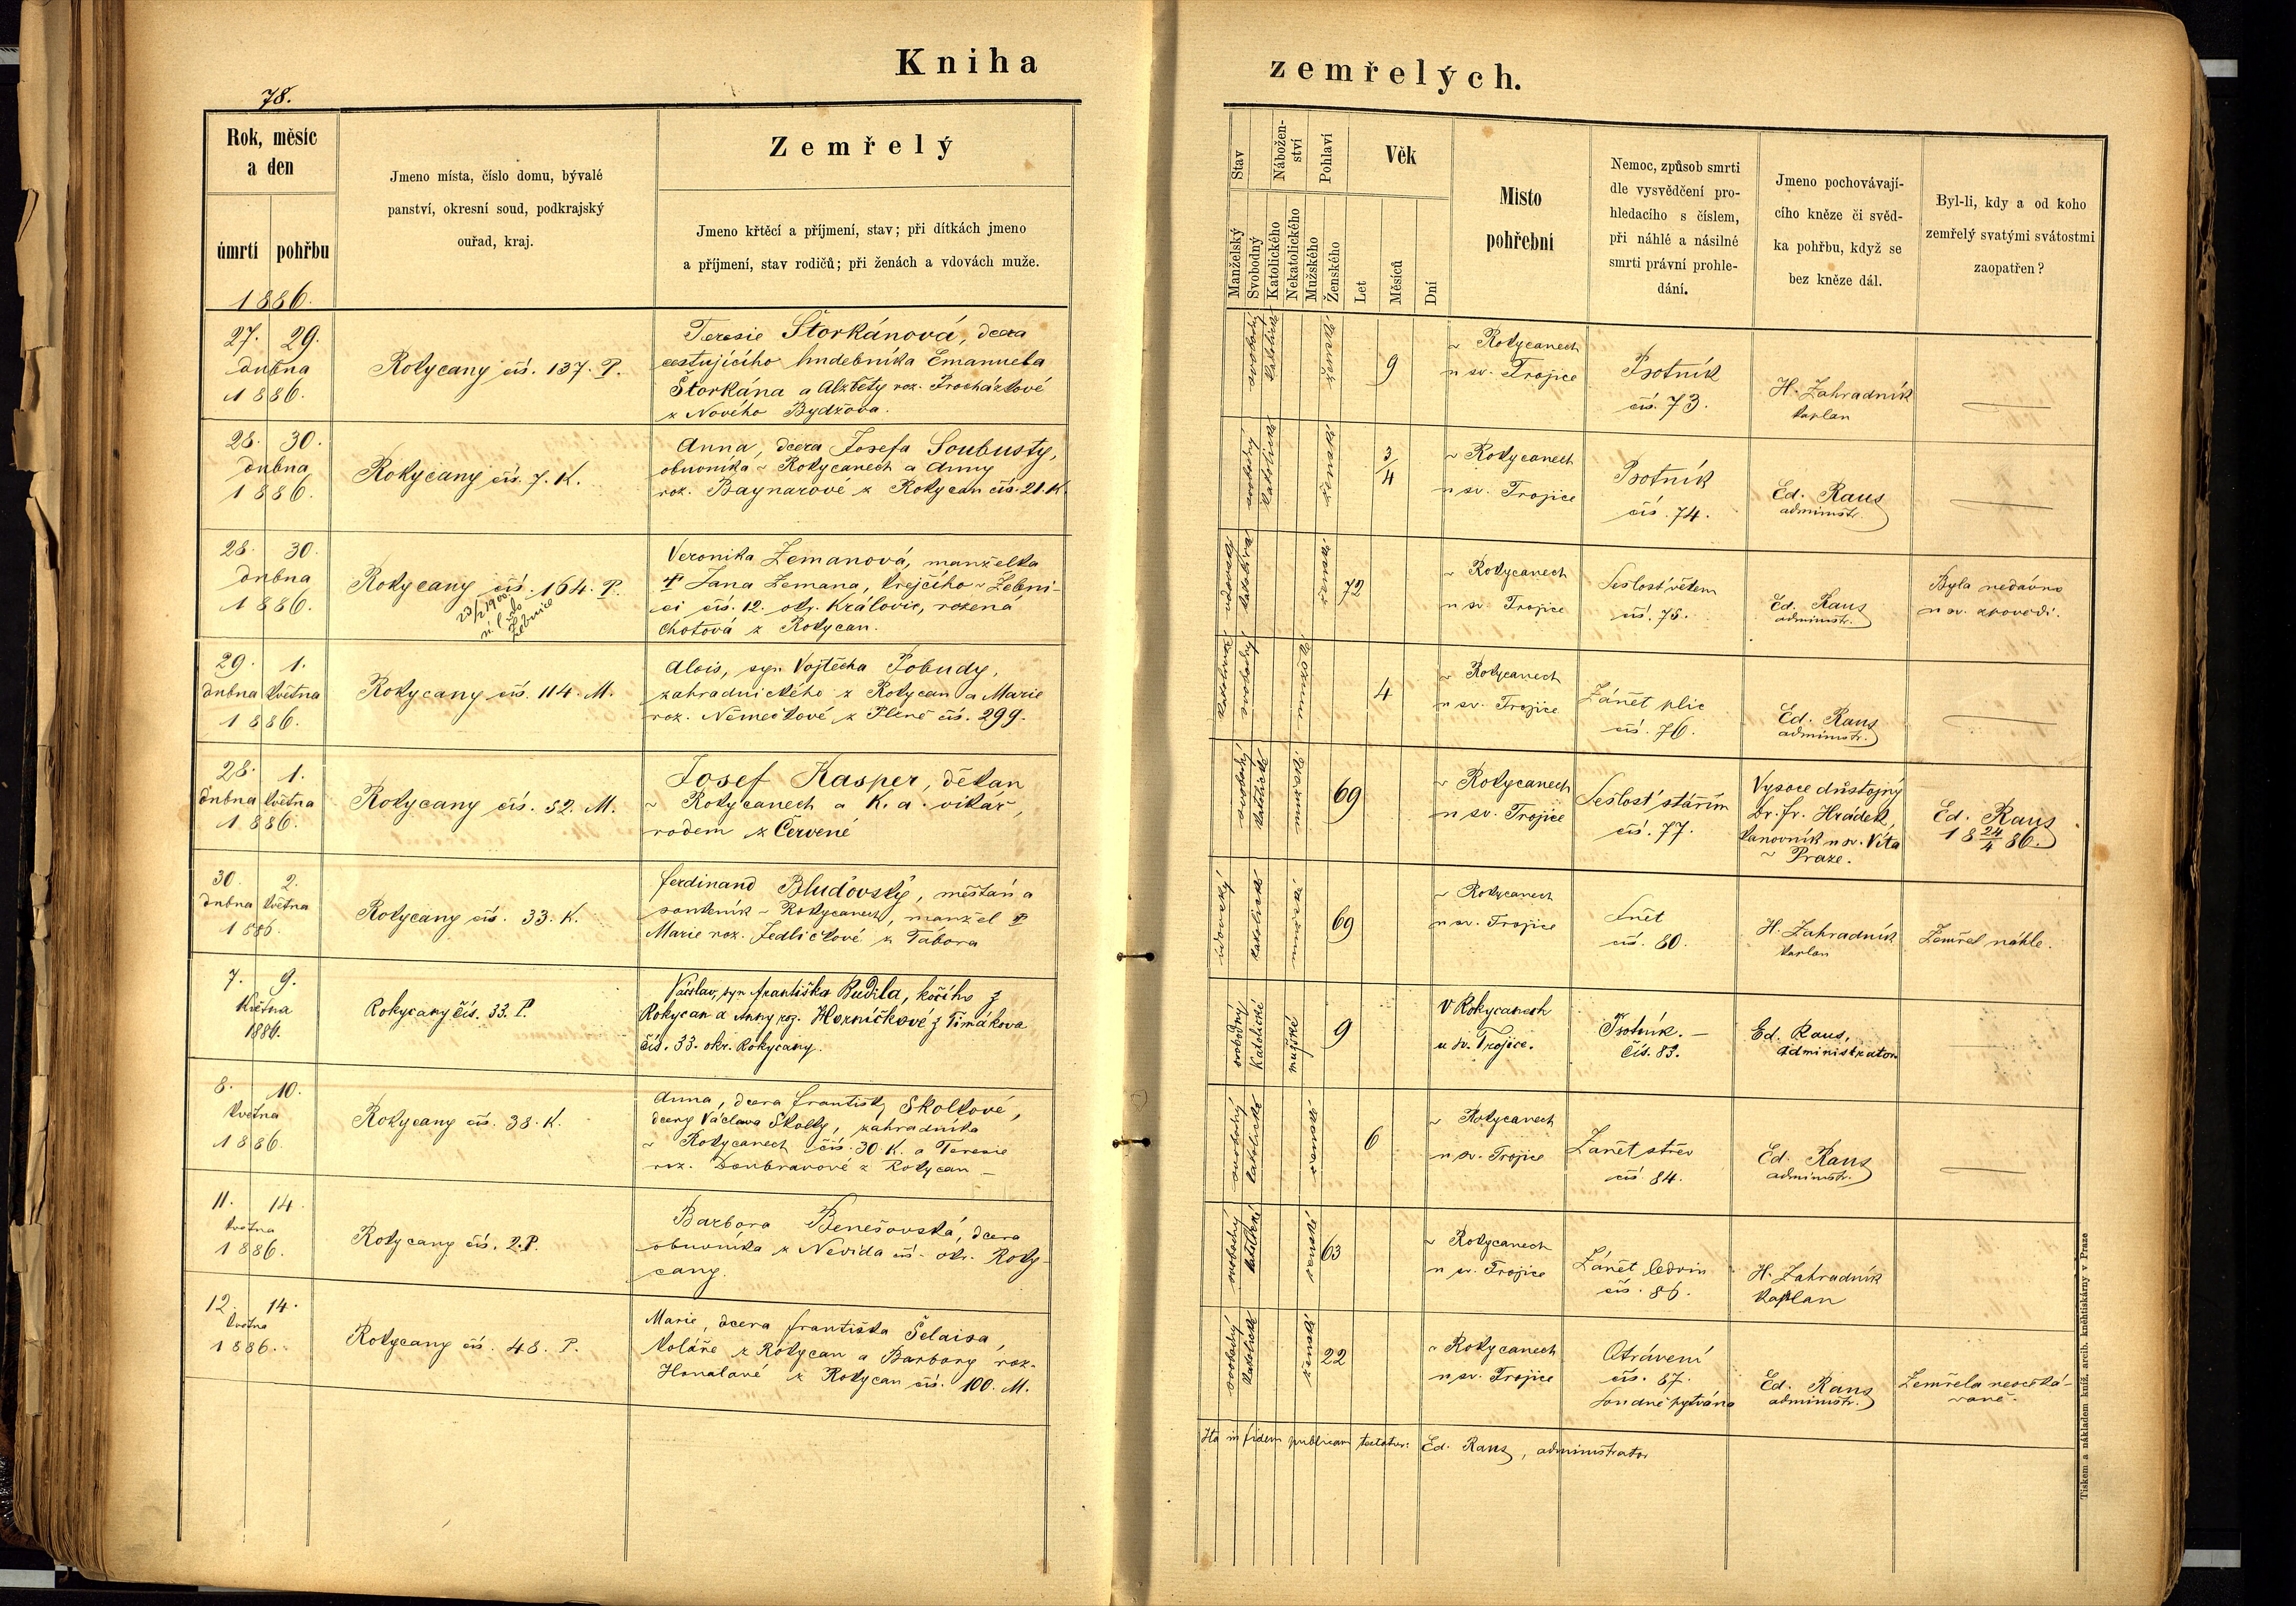 Kniha
zemřelých.
78.
Rok, měsíc
a den
úmrtí
pohřbu
1886.
Jmeno místa, číslo domu, bývalé
panství, okresní soud, podkrajský
ouřad, kraj.
Zemřelý
Jmeno křtěcí a příjmení, stav; při dítkách jmeno
a příjmení, stav rodičů; při ženách a vdovách muže.
Stav
Manželský
Svobodný
Nábožen-
ství
Katolického
Nekatolického
Pohlaví
Mužského
Ženského
Věk
Let
Měsíců
Dní
Místo
pohřební
Nemoc, způsob smrti
dle vysvědčení pro-
hledacího s číslem,
při náhlé a násilné
smrti právní prohle-
dání.
Jmeno pochovávají-
cího kněze či svěd-
ka pohřbu, když se
bez kněze dál.
Byl-li, kdy a od koho
zemřelý svatými svátostmi
zaopatřen?
27. 29.
dubna
1886.
Rokycany čís. 137. P.
Teresie Štorkánová, dcera
cestujícího hudebníka Emanuela
Štorkána a Alžběty roz. Procházkové
z Nového Bydžova.
svobodný
katolické
ženské
9
v Rokycanech
u sv. Trojice
Psotník
čís. 73.
H. Zahradník
kaplan
28. 30.
dubna
1886.
Rokycany čís. 7. K.
Anna, dcera Josefa Soubusty,
obuvníka v Rokycanech a Anny
roz. Baynarové z Rokycan čís. 21. K.
svobodný
katolické
ženské
3/4
v Rokycanech
u sv. Trojice
Psotník
čís. 74.
Ed. Raus
administr.
28. 30.
dubna
1886.
Rokycany čís. 164. P.
23/2 1900
Žebnice
Veronika Zemanová, manželka
† Jana Zemana, krejčího v Žebni-
ci čís. 12. okr. Královic, rozená
Chotová z Rokycan.
vdovský
katolické
ženské
72
v Rokycanech
u sv. Trojice
Sešlosť věkem
čís. 75.
Ed. Raus
administr.
Byla nedávno
u sv. zpovědi.
29. 1.
dubna května
1886.
Rokycany čís. 114. M.
Alois, syn Vojtěcha Pobudy,
zahradnického z Rokycan a Marie
roz. Němečkové z Plzně čís. 299.
katolické
svobodný
mužské
4
v Rokycanech
u sv. Trojice
Zánět plic
čís. 76.
Ed. Raus
administr.
28. 1.
dubna května
1886.
Rokycany čís. 52. M.
Josef Kasper, děkan
v Rokycanech a K. a. vikář,
rodem z Červené
svobodný
katolické
mužské
69
v Rokycanech
u sv. Trojice
Sešlosť stářím
čís. 77.
Vysoce důstojný
Dr. Fr. Hrádek,
kanovník u sv. Víta
v Praze.
Ed. Raus
18 24/4 86.
30. 2.
dubna května
1886.
Rokycany čís. 33. K.
Ferdinand Bluďovský, měšťan a
soukeník v Rokycanech, manžel †
Marie roz. Jedličkové z Tábora
vdovský
katolické
mužské
69
v Rokycanech
u sv. Trojice
Sněť
čís. 80.
H. Zahradník
kaplan
Zemřel náhle.
7. 9.
Května
1886.
Rokycany čís. 33. P.
Václav, syn Františka Budila, kočího z
Rokycan a Anny roz. Horníčkové z Timákova
čís. 33. okr. Rokycany.
svobodný
Katolické
mužské
9
V Rokycanech
u sv. Trojice.
Psotník. –
čís. 83.
Ed. Raus,
administrator
8. 10.
Května
1886.
Rokycany čís. 38. K.
Anna, dcera Františky Skolkové,
dcery Václava Skolky, zahradníka
v Rokycanech čís. 30 K. a Teresie
roz. Doubravové z Rokycan –
svobodný
katolické
ženské
6
v Rokycanech
u sv. Trojice
Zánět střev
čís. 84.
Ed. Raus
administr.
11. 14.
Května
1886.
Rokycany čís. 2. P.
Barbora Benešovská, dcera
obuvníka z Nevida čís – okr. Roky-
cany.
svobodný
katolické
ženské
63
v Rokycanech
u sv. Trojice
Zánět ledvin
čís. 86.
H. Zahradník
Kaplan
12. 14.
Května
1886.
Rokycany čís. 48. P.
Marie, dcera Františka Šelaisa,
koláře z Rokycan a Barbory roz.
z Rokycan čís. 100. M.
svobodný
katolické
ženské
22
v Rokycanech
u sv. Trojice
Otrávení
čís. 87.
Soudně pytvána
Ed. Raus
administr.
Zemřela neočeká-
vaně.
Ita in fidem publicam testatur: Ed. Raus, administrator
Tiskem a nákladem kníž. arcib. kněhtiskárny v Praze